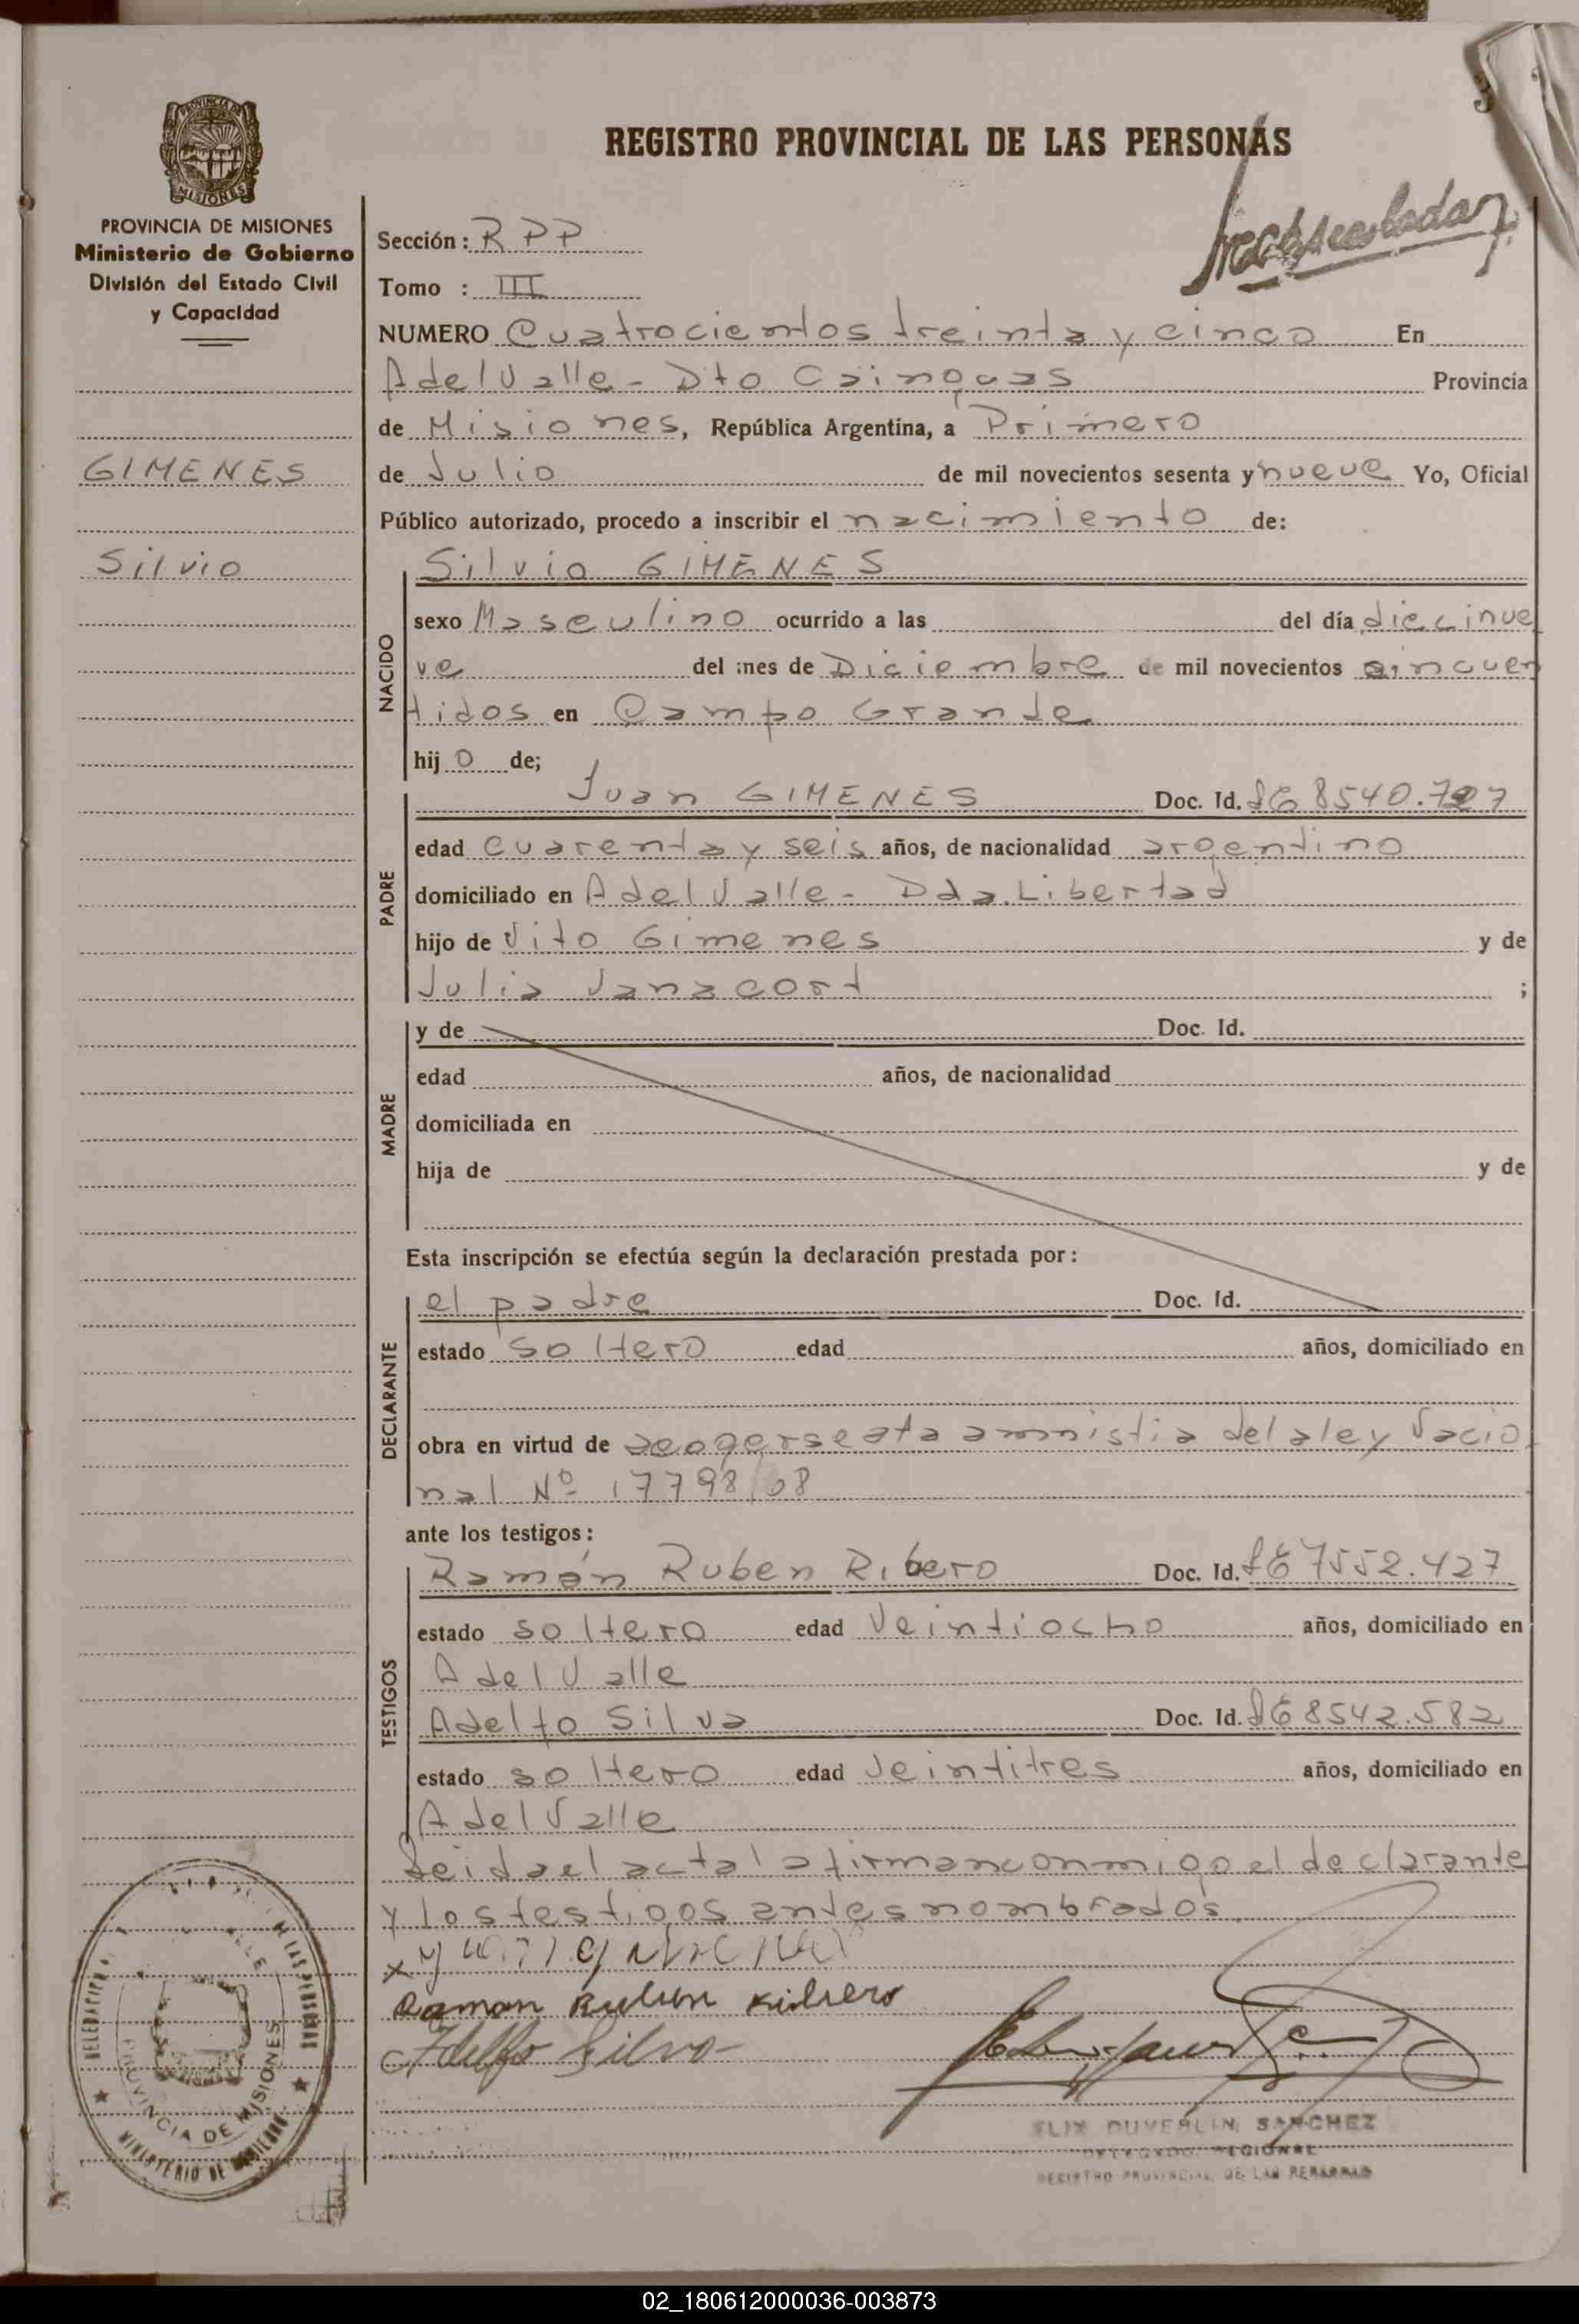 REGISTRO PROVINCIAL DE LAS PERSONAS
PROVINCIA DE
MISIONES
PROVINCIA DE MISIONES
Ministerio de Gobierno
División del Estado Civil
y Capacidad
GIMENES
Silvio
Sección: RPP
Tomo : III
NUMERO Cuatrocientos treinta y cinco En
A del Valle - Dto Cainguas Provincia
de Misiones, República Argentina, a Primero
de Julio de mil novecientos sesenta y nueve Yo, Oficial
Público autorizado, procedo a inscribir el nacimiento de:
NACIDO
Silvio GIMENES
sexo Masculino ocurrido a las del día diecinue
ve del mes de Diciembre de mil novecientos cincuen
tidos en Campo Grande
hijo de;
PADRE
Juan GIMENES Doc. Id. 8540.727
edad cuarenta y seis años, de nacionalidad argentino
domiciliado en A del Valle - Pda. Libertad
hijo de Vito Gimenes y de
Julia Janacort ;
MADRE
y de Doc. Id.
edad años, de nacionalidad
domiciliada en
hija de y de
Esta inscripción se efectúa según la declaración prestada por:
DECLARANTE
el padre Doc. Id.
estado soltero edad años, domiciliado en
obra en virtud de acogerse ata amnistia del aley Nacio
nal Nº 17798/68
ante los testigos:
TESTIGOS
Ramón Ruben Ribero Doc. Id. 7552.427
estado soltero edad Veintiocho años, domiciliado en
A del Valle
Adelfo Silva Doc. Id. 8542.582
estado soltero edad Veintitres años, domiciliado en
A del Valle
Leida el acta la firman conmigo el declarante
y los testigos antes nombrados
Ramon Ruben Ribero
Adelfo Silva
DUVERLIN SANCHEZ
DELEGADO REGIONAL
REGISTRO PROVINCIAL DE LAS PERSONAS
DE LAS PERSONAS
PROVINCIA DE MISIONES
MINISTERIO DE GOBIERNO
02_180612000036-003873